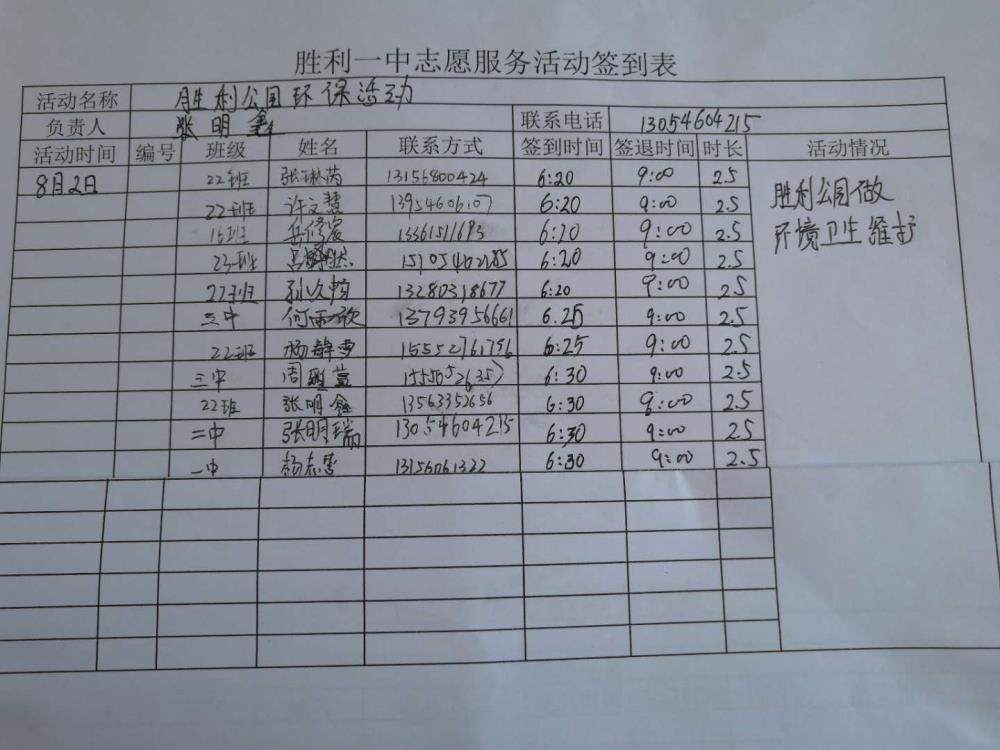 胜利一中志愿服务活动签到表
活动名称 胜利公园环保活动
负责人 张明鑫 联系电话 13054604215
活动时间 编号 班级 姓名 联系方式 签到时间 签退时间 时长 活动情况
8月2日 22班 张琳芮 13156800424 6:20 9:00 2.5 胜利公园做
22班 许文慧 13954606107 6:20 9:00 2.5 环境卫生维护
16班 13361511693 6:20 9:00 2.5
23班 6:20 9:00 2.5
22班 孙久畅 13280318677 6:20 9:00 2.5
三中 何雨欣 13793956661 6.25 9:00 2.5
22班 杨静雯 15552761756 6:25 9:00 2.5
三中 周 萱 6:30 9:00 2.5
22班 张明鑫 13563352656 6:30 9:00 2.5
二中 张明瑞 13054604215 6:30 9:00 2.5
一中 杨志雯 13156061322 6:30 9:00 2.5